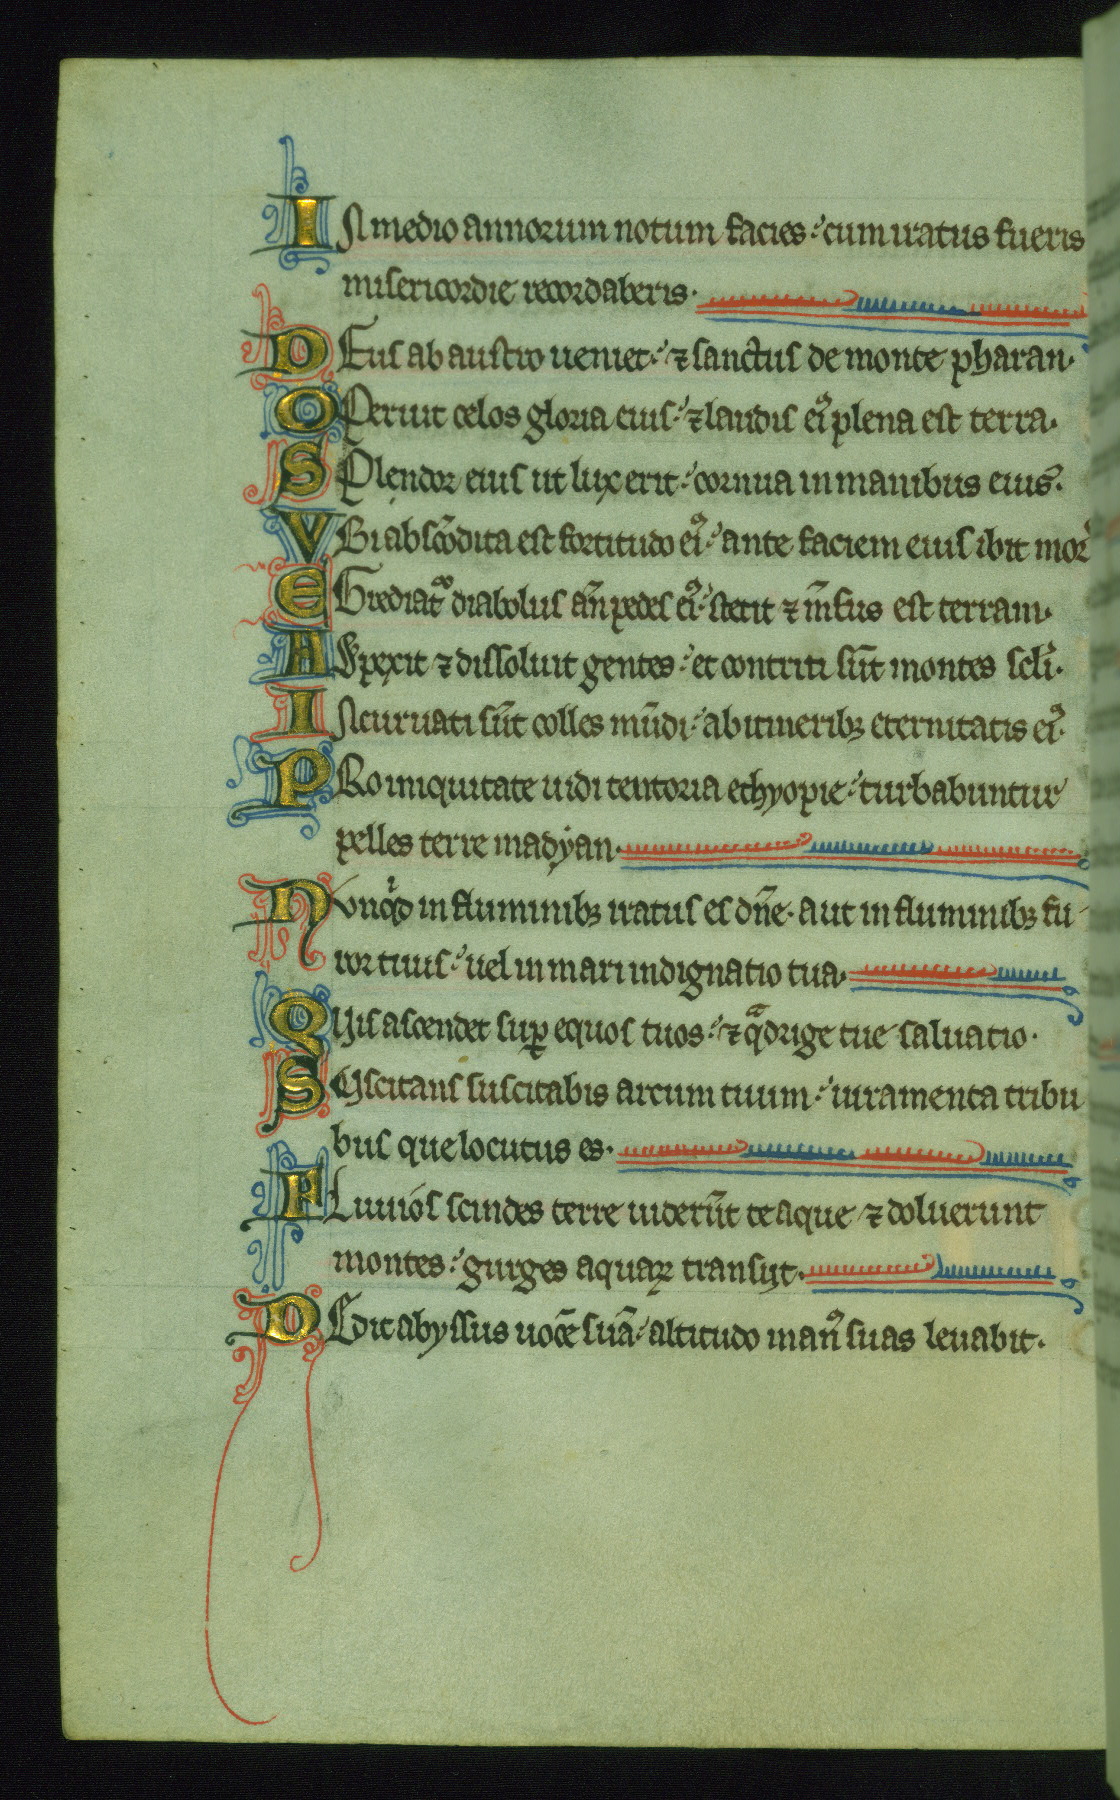 IN medio annorum notum facies: cum iratus fueris
misericordie recordaberis.
DEus ab austro ueniet: ⁊ sanctus de monte pharan.
OPeruit celos gloria eius: ⁊ laudis eiꝰ plena est terra.
SPlendor eius ut lux erit: cornua in manibus eius.
VBi abscõdita est fortitudo eiꝰ: ante faciem eius ibit mor᷑
EGrediat᷑ diabolus an̄ pedes eiꝰ: stetit ⁊ m̄sus est terram.
ASpexit ⁊ dissoluit gentes: et contriti sūt montes scl̓i.
INcuruati sūt colles mūdi: ab itineribꝫ eternitatis eiꝰ.
PRo iniquitate uidi tentoria ethyopie: turbabuntur
pelles terre madyan.
NVnqͥd in fluminibꝫ iratus es dn̄e. aut in fluminibꝫ fu-
ror tuus: uel in mari indignatio tua.
QVis ascendet suꝑ equos tuos: ⁊ qͣdrige tue saluatio.
SVscitans suscitabis arcum tuum: iuramenta tribu
bus que locutus es.
FLuuios scindes terre uiderūt te aque ⁊ doluerunt
montes: gurges aquaꝝ transijt.
DEdit abyssus uocē suā: altitudo manꝰ suas leuabit.